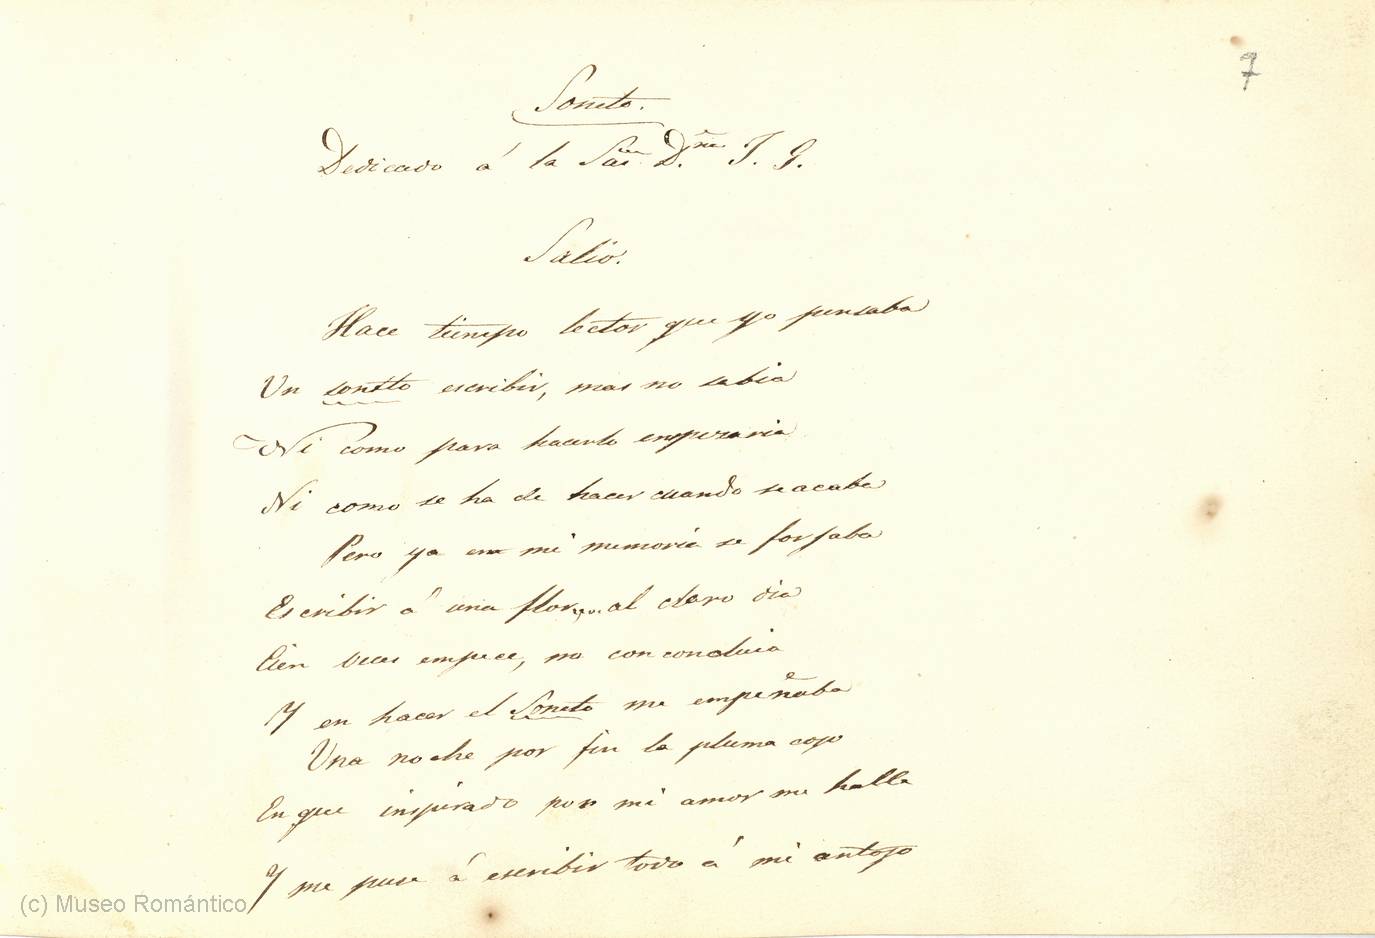 7
Soneto.
Dedicado á la Sra. D.ña J. G.
Salio.
Hace tiempo lector que yo pensaba
Un soneto escribir, mas no sabia
Ni como para hacerlo empezaria
Ni como se ha de hacer cuando se acaba
Pero ya en mi memoria se forjaba
Escribir á una flor,..... al claro dia
Cien veces empece, no con concluia
Y en hacer el Soneto me empeñaba
Una noche por fin la pluma cojo
En que inspirado por mi amor me halle
Y me puse á escribir todo á mi antojo
(c) Museo Romántico